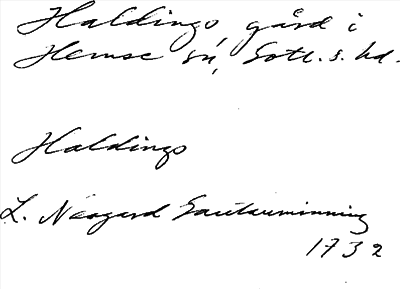 Haldingo, gård i
Hemse sn, Gotl. s. hd.
Haldingo
L. Neogard Gautauminning
1732